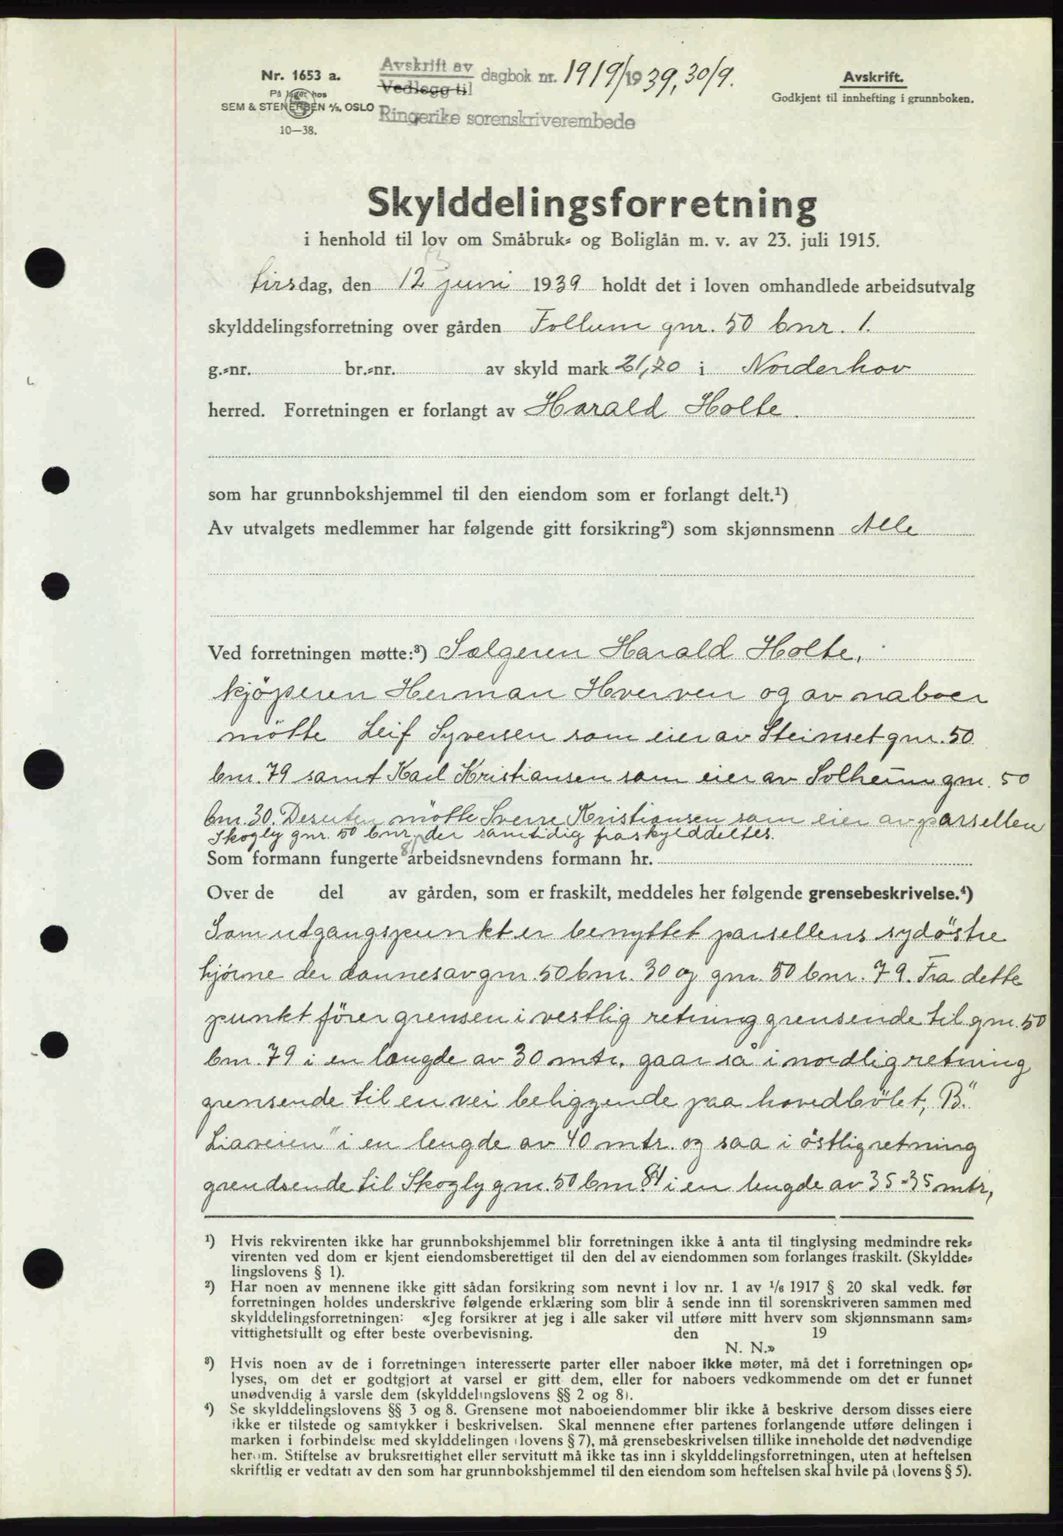 Nr. 1653 a.
På lager hos
SEM & STENERSEN A/S, OSLO
10—38.
Avskrift av
Vedlegg til dagbok nr. 1919/1939, 30/9.
Ringerike sorenskriverembede
Avskrift.
Godkjent til innhefting i grunnboken.
Skylddelingsforretning
i henhold til lov om Småbruk- og Boliglån m. v. av 23. juli 1915.
tirsdag, den 12 juni 1939 holdt det i loven omhandlede arbeidsutvalg
13
skylddelingsforretning over gården Follum gnr. 50 bnr. 1.
g.-nr. br.-nr. av skyld mark 21,70 i Norderhov
herred. Forretningen er forlangt av Harald Holte.
som har grunnbokshjemmel til den eiendom som er forlangt delt.¹)
Av utvalgets medlemmer har følgende gitt forsikring²) som skjønnsmenn Alle
Ved forretningen møtte:³) Sælgeren Harald Holte,
kjöperen Herman Hverven og av naboer
mötte Leif Syversen som eier av Steinset gnr. 50
bnr. 79 samt Karl Kristiansen som eier av Solheim gnr. 50
bnr. 30. Desuten mötte Sverre Kristiansen som eier av parsellen
Skogly gnr. 50 bnr. 81 der samtidig fraskylddeltes.
Som formann fungerte arbeidsnevndens formann hr.
Over de del av gården, som er fraskilt, meddeles her følgende grensebeskrivelse.⁴)
Som utgangspunkt er benyttet parsellens sydöstre
hjörne der dannes av gnr. 50 bnr. 30 og gnr. 50 bnr. 79. Fra dette
punkt förer grensen i vestlig retning grensende til gnr. 50
bnr. 79 i en længde av 30 mtr. gaar så i nordlig retning
grensende til en vei beliggende paa hovedbölet, "B.
Liaveien" i en lengde av 40 mtr. og saa i östlig retning
grendsende til Skogly gnr. 50 bnr. 81 i en lengde av 35-35 mtr,
¹) Hvis rekvirenten ikke har grunnbokshjemmel blir forretningen ikke å anta til tinglysing medmindre rek-
virenten ved dom er kjent eiendomsberettiget til den del av eiendommen som forlanges fraskilt. (Skyldde-
lingslovens § 1).
²) Har noen av mennene ikke gitt sådan forsikring som nevnt i lov nr. 1 av ¹/₆ 1917 § 20 skal vedk. før
forretningen holdes underskrive følgende erklæring som blir å sende inn til sorenskriveren sammen med
skylddelingsforretningen: «Jeg forsikrer at jeg i alle saker vil utføre mitt hverv som skjønnsmann sam-
vittighetsfullt og efter beste overbevisning. den 19
N. N.»
³) Hvis noen av de i forretningen interesserte parter eller naboer ikke møter, må det i forretningen op-
lyses, om det er godtgjort at varsel er gitt dem, eller for naboers vedkommende om det er funnet
unødvendig å varsle dem (skylddelingslovens §§ 2 og 8).
⁴) Se skylddelingslovens §§ 3 og 8. Grensene mot naboeiendommer blir ikke å beskrive dersom disses eiere
ikke er tilstede og samtykker i beskrivelsen. Skal mennene efter partenes forlangende utføre delingen i
marken i forbindelse med skylddelingen (lovens § 7), må grensebeskrivelsen tillike inneholde det nødvendige
herom. Stiftelse av bruksrettighet eller servitutt må ikke tas inn i skylddelingsforretningen, uten at heftelsen
skriftlig er vedtatt av den som har grunnbokshjemmel til den eiendom som heftelsen skal hvile på (lovens § 5).